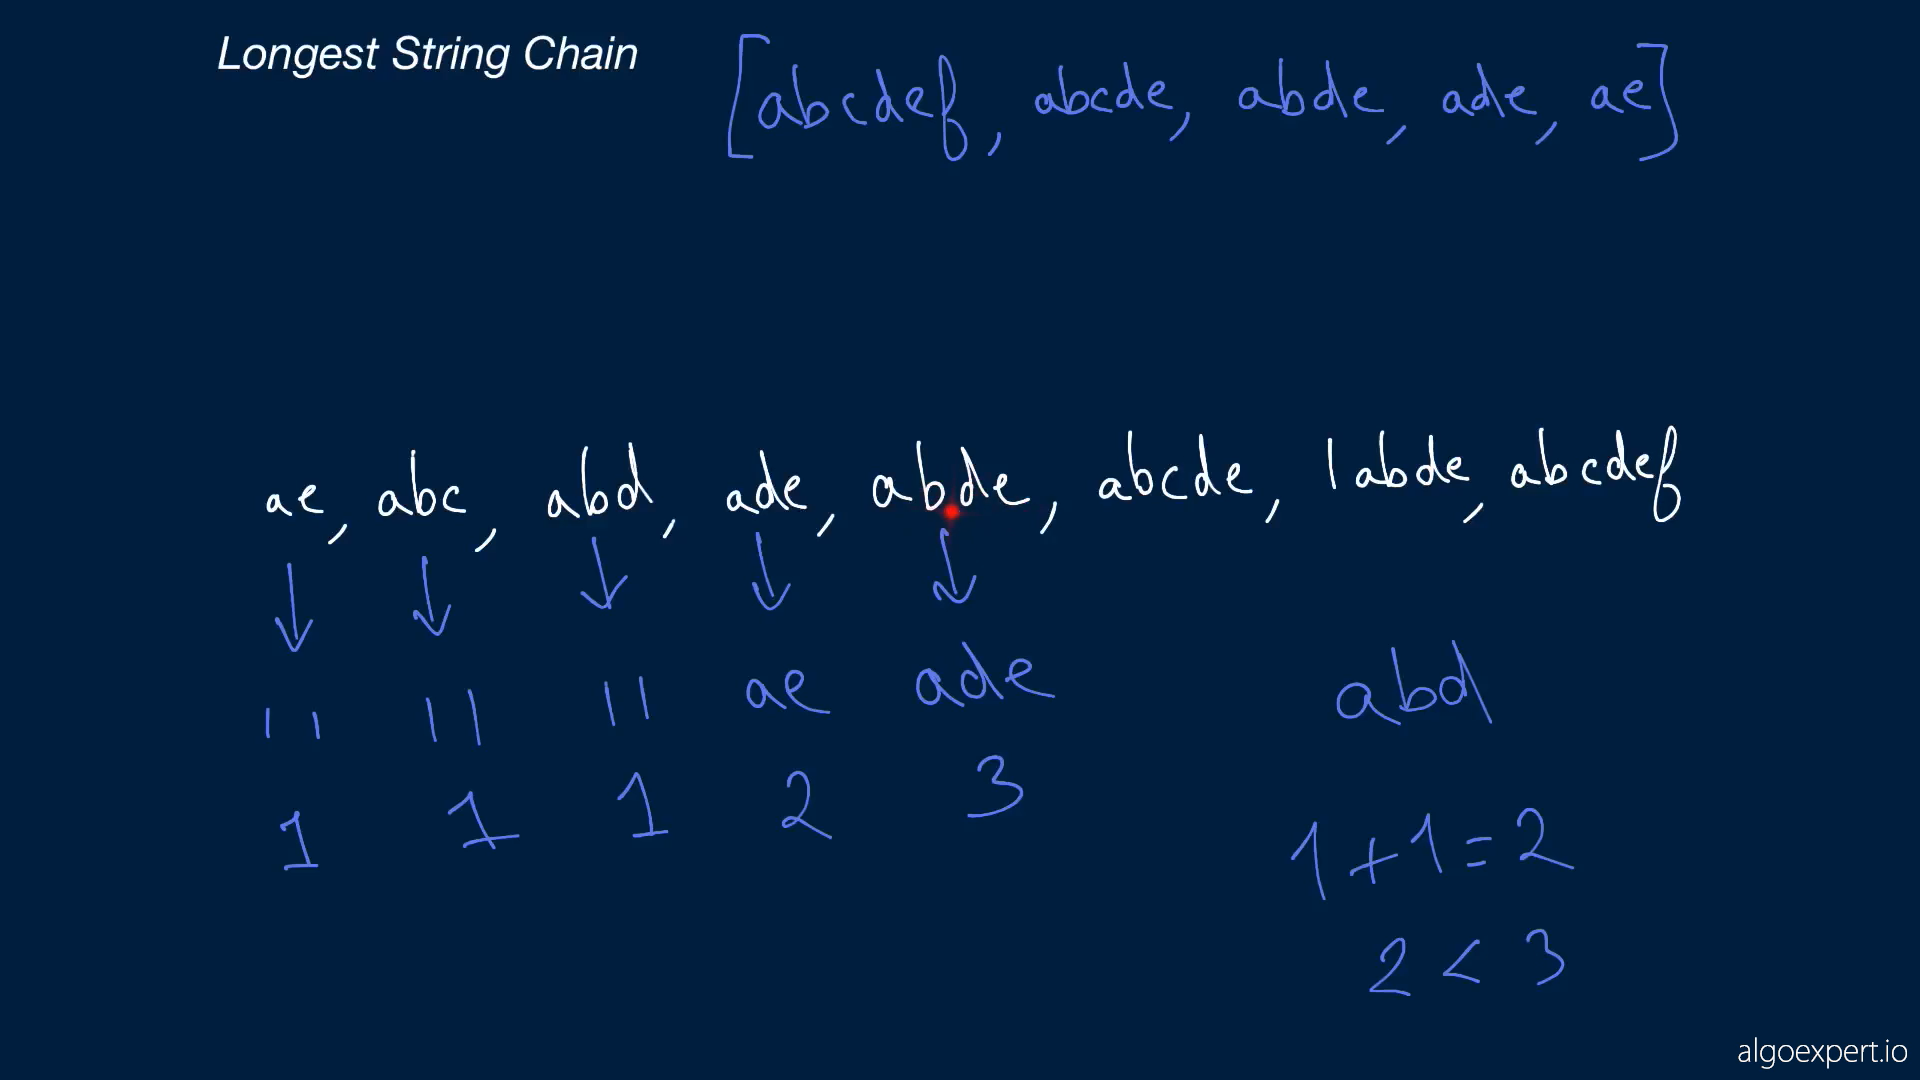 Longest String Chain
[abcdef, abcde, abde, ade, ae]
ae, abc, abd, ade, abde, abcde, 1abde, abcdef
" " " ae ade abd
1 1 1 2 3 1+1=2
2 < 3
algoexpert.io